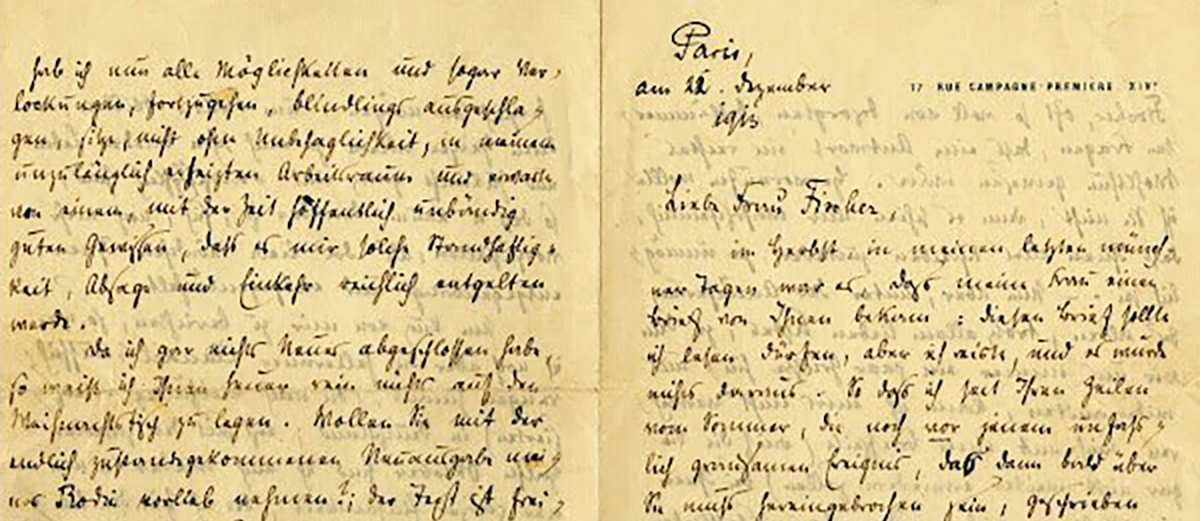 hab ich nun alle Möglichkeiten und sogar Ver-
lockungen, fortzugehen, blindlings ausgeschla-
gen, sitze, nicht ohne Unbehaglichkeit, in meinem
unzulänglich erheizten Arbeitsraum und erwarte
von einem, mit der Zeit hoffentlich unbändig
guten Gewissen, dass es mir solche Standhaftig-
keit, Absage und Einkehr reichlich entgelten
werde.
Da ich gar nichts Neues abgeschlossen habe,
so weiß ich Ihnen heuer rein nichts auf den
Weihnachtstisch zu legen. Wollen Sie mit der
endlich zustandegekommenen Neuausgabe mei-
nes Rodin vorlieb nehmen?; der Text ist frei-
Paris,
am 22. Dezember
1913
17 RUE CAMPAGNE-PREMIÈRE XIVᵉ
Liebe Frau Fischer,
im Herbst, in meinen letzten münch-
ner Tagen war es, dass meine Frau einen
Brief von Ihnen bekam: diesen Brief sollte
ich lesen dürfen, aber ich reiste, und es wurde
nichts daraus. So dass ich seit Ihren Zeilen
vom Sommer, die noch vor jenem unfass-
lich grausamen Ereignis, das dann bald über
Sie muss hereingebrochen sein, geschrieben